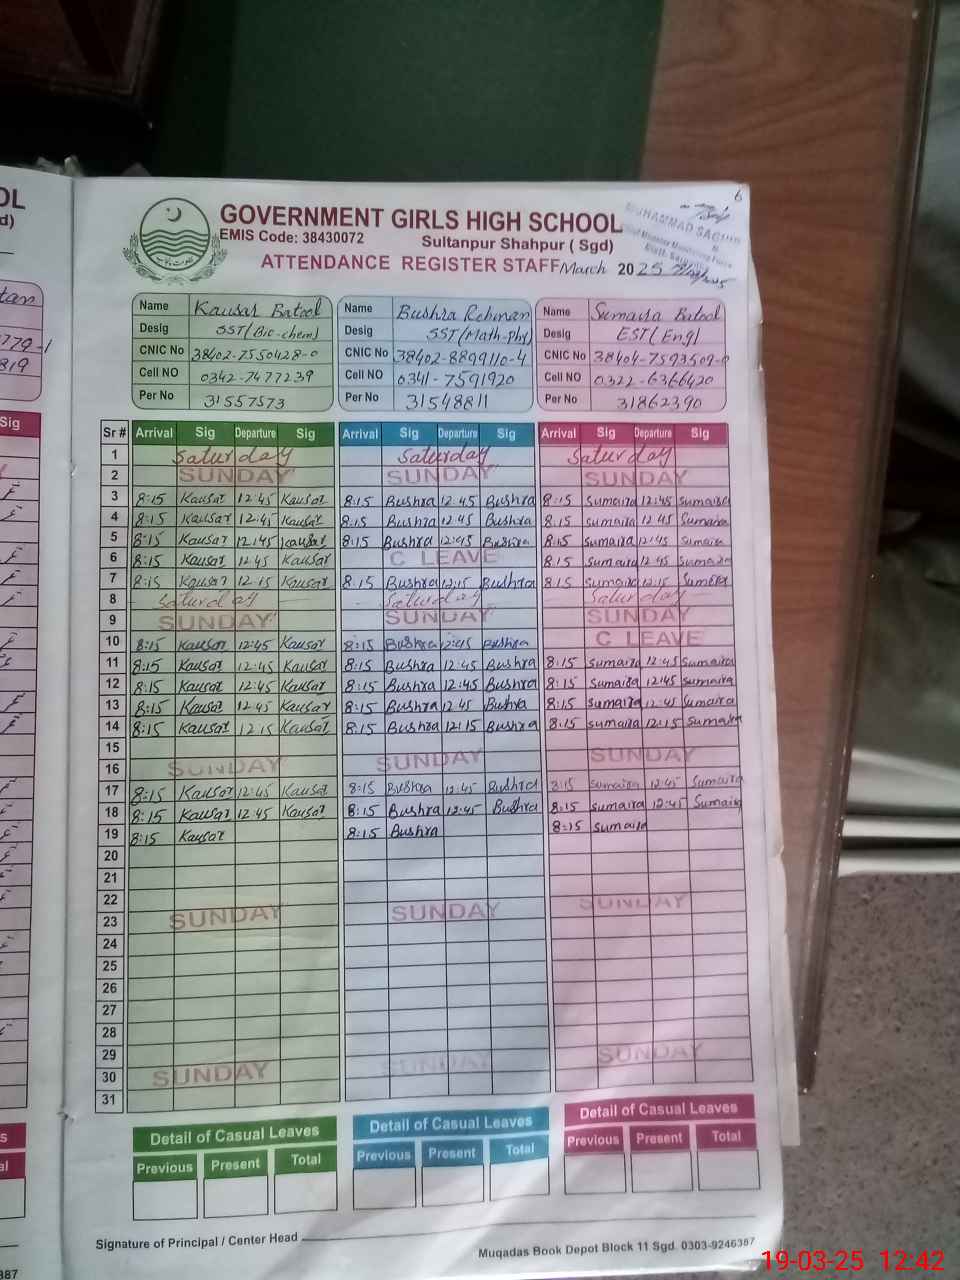 GOVERNMENT GIRLS HIGH SCHOOL
EMIS Code: 38430072 Sultanpur Shahpur ( Sgd)
ATTENDANCE REGISTER STAFF March 2025
6
MUHAMMAD
Name Kausar Batool Name Bushra Rehman Name Sumaira Batool
Desig SST(Bio-chem) Desig SST(Math-Phy) Desig EST(Eng)
CNIC No 38402-7550428-0 CNIC No 38402-8899110-4 CNIC No 38404-7593509-0
Cell NO 0342-7477239 Cell NO 0341-7591920 Cell NO 0322-6366420
Per No 31557573 Per No 31548811 Per No 31862390
Sr # Arrival Sig Departure Sig Arrival Sig Departure Sig Arrival Sig Departure Sig
1 Saturday Saturday Saturday
2 SUNDAY SUNDAY SUNDAY
3 8:15 Kausar 12:45 Kausar 8:15 Bushra 12:45 Bushra 8:15 Sumaira 12:45 Sumaira
4 8:15 Kausar 12:45 Kausar 8:15 Bushra 12:45 Bushra 8:15 Sumaira 12:45 Sumaira
5 8:15 Kausar 12:45 Kausar 8:15 Bushra 12:45 Bushra 8:15 Sumaira 12:45 Sumaira
6 8:15 Kausar 12:45 Kausar C LEAVE 8:15 Sumaira 12:45 Sumaira
7 8:15 Kausar 12:15 Kausar 8:15 Bushra 12:15 Bushra 8:15 Sumaira 12:15 Sumaira
8 Saturday Saturday Saturday
9 SUNDAY SUNDAY SUNDAY
10 8:15 Kausar 12:45 Kausar 8:15 Bushra 12:45 Bushra C LEAVE
11 8:15 Kausar 12:45 Kausar 8:15 Bushra 12:45 Bushra 8:15 Sumaira 12:45 Sumaira
12 8:15 Kausar 12:45 Kausar 8:15 Bushra 12:45 Bushra 8:15 Sumaira 12:45 Sumaira
13 8:15 Kausar 12:45 Kausar 8:15 Bushra 12:45 Bushra 8:15 Sumaira 12:45 Sumaira
14 8:15 Kausar 12:15 Kausar 8:15 Bushra 12:15 Bushra 8:15 Sumaira 12:15 Sumaira
15
16 SUNDAY SUNDAY SUNDAY
17 8:15 Kausar 12:45 Kausar 8:15 Bushra 12:45 Bushra 8:15 Sumaira 12:45 Sumaira
18 8:15 Kausar 12:45 Kausar 8:15 Bushra 12:45 Bushra 8:15 Sumaira 12:45 Sumaira
19 8:15 Kausar 8:15 Bushra 8:15 Sumaira
20
21
22
23 SUNDAY SUNDAY SUNDAY
24
25
26
27
28
29
30 SUNDAY SUNDAY SUNDAY
31
Detail of Casual Leaves Detail of Casual Leaves Detail of Casual Leaves
Previous Present Total Previous Present Total Previous Present Total
Signature of Principal / Center Head
Muqadas Book Depot Block 11 Sgd. 0303-9246387
19-03-25 12:42